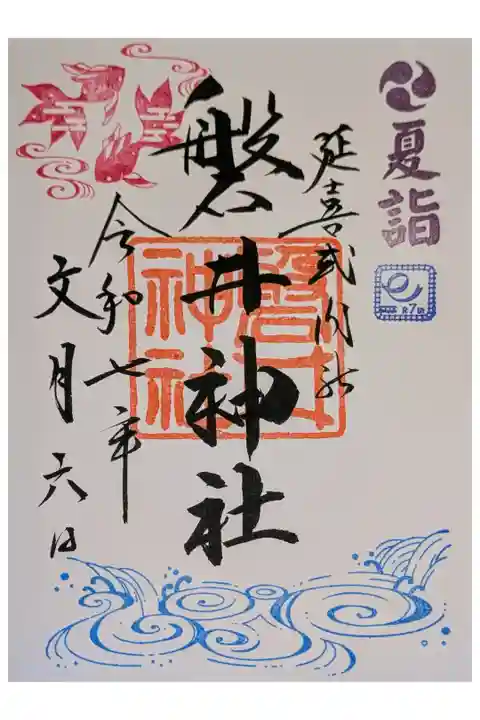 夏詣
延喜式内社
磐井神社
磐井神社
令和七年
文月六日